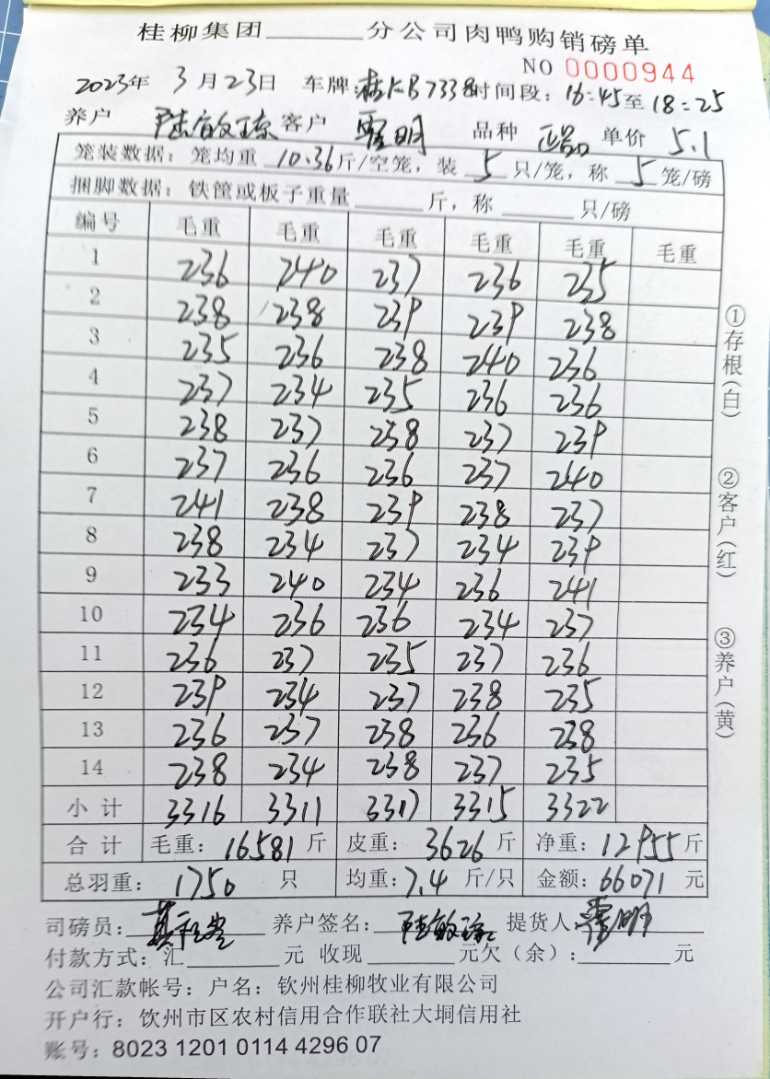 桂柳集团______分公司肉鸭购销磅单
NO 0000944
2023年 3月23日 车牌 KB7338 时间段：16:45至18:25
养户 陆敏琼 客户 明 品种 单价 5.1
笼装数据：笼均重 10.36斤/空笼，装 5 只/笼，称 5 笼/磅
捆脚数据：铁筐或板子重量______斤，称______只/磅
编号 毛重 毛重 毛重 毛重 毛重 毛重
1 236 240 237 236 235
2 238 238 239 239 238
3 235 236 238 240 236
4 237 234 235 236 236
5 238 237 238 237 239
6 237 236 236 237 240
7 241 238 239 238 237
8 238 234 237 234 239
9 233 240 234 236 241
10 234 236 236 234 237
11 236 237 235 237 236
12 239 234 237 238 235
13 236 237 238 236 238
14 238 234 238 237 235
小计 3316 3311 3317 3315 3322
合计 毛重：16581斤 皮重：3626斤 净重：12955斤
总羽重：1750 只 均重：7.4 斤/只 金额：66071 元
司磅员： 养户签名：陆敏琼 提货人： 明
付款方式：汇______元 收现______元欠（余）：______元
公司汇款帐号：户名：钦州桂柳牧业有限公司
开户行：钦州市区农村信用合作联社大垌信用社
账号：8023 1201 0114 4296 07
①存根(白)
②客户(红)
③养户(黄)